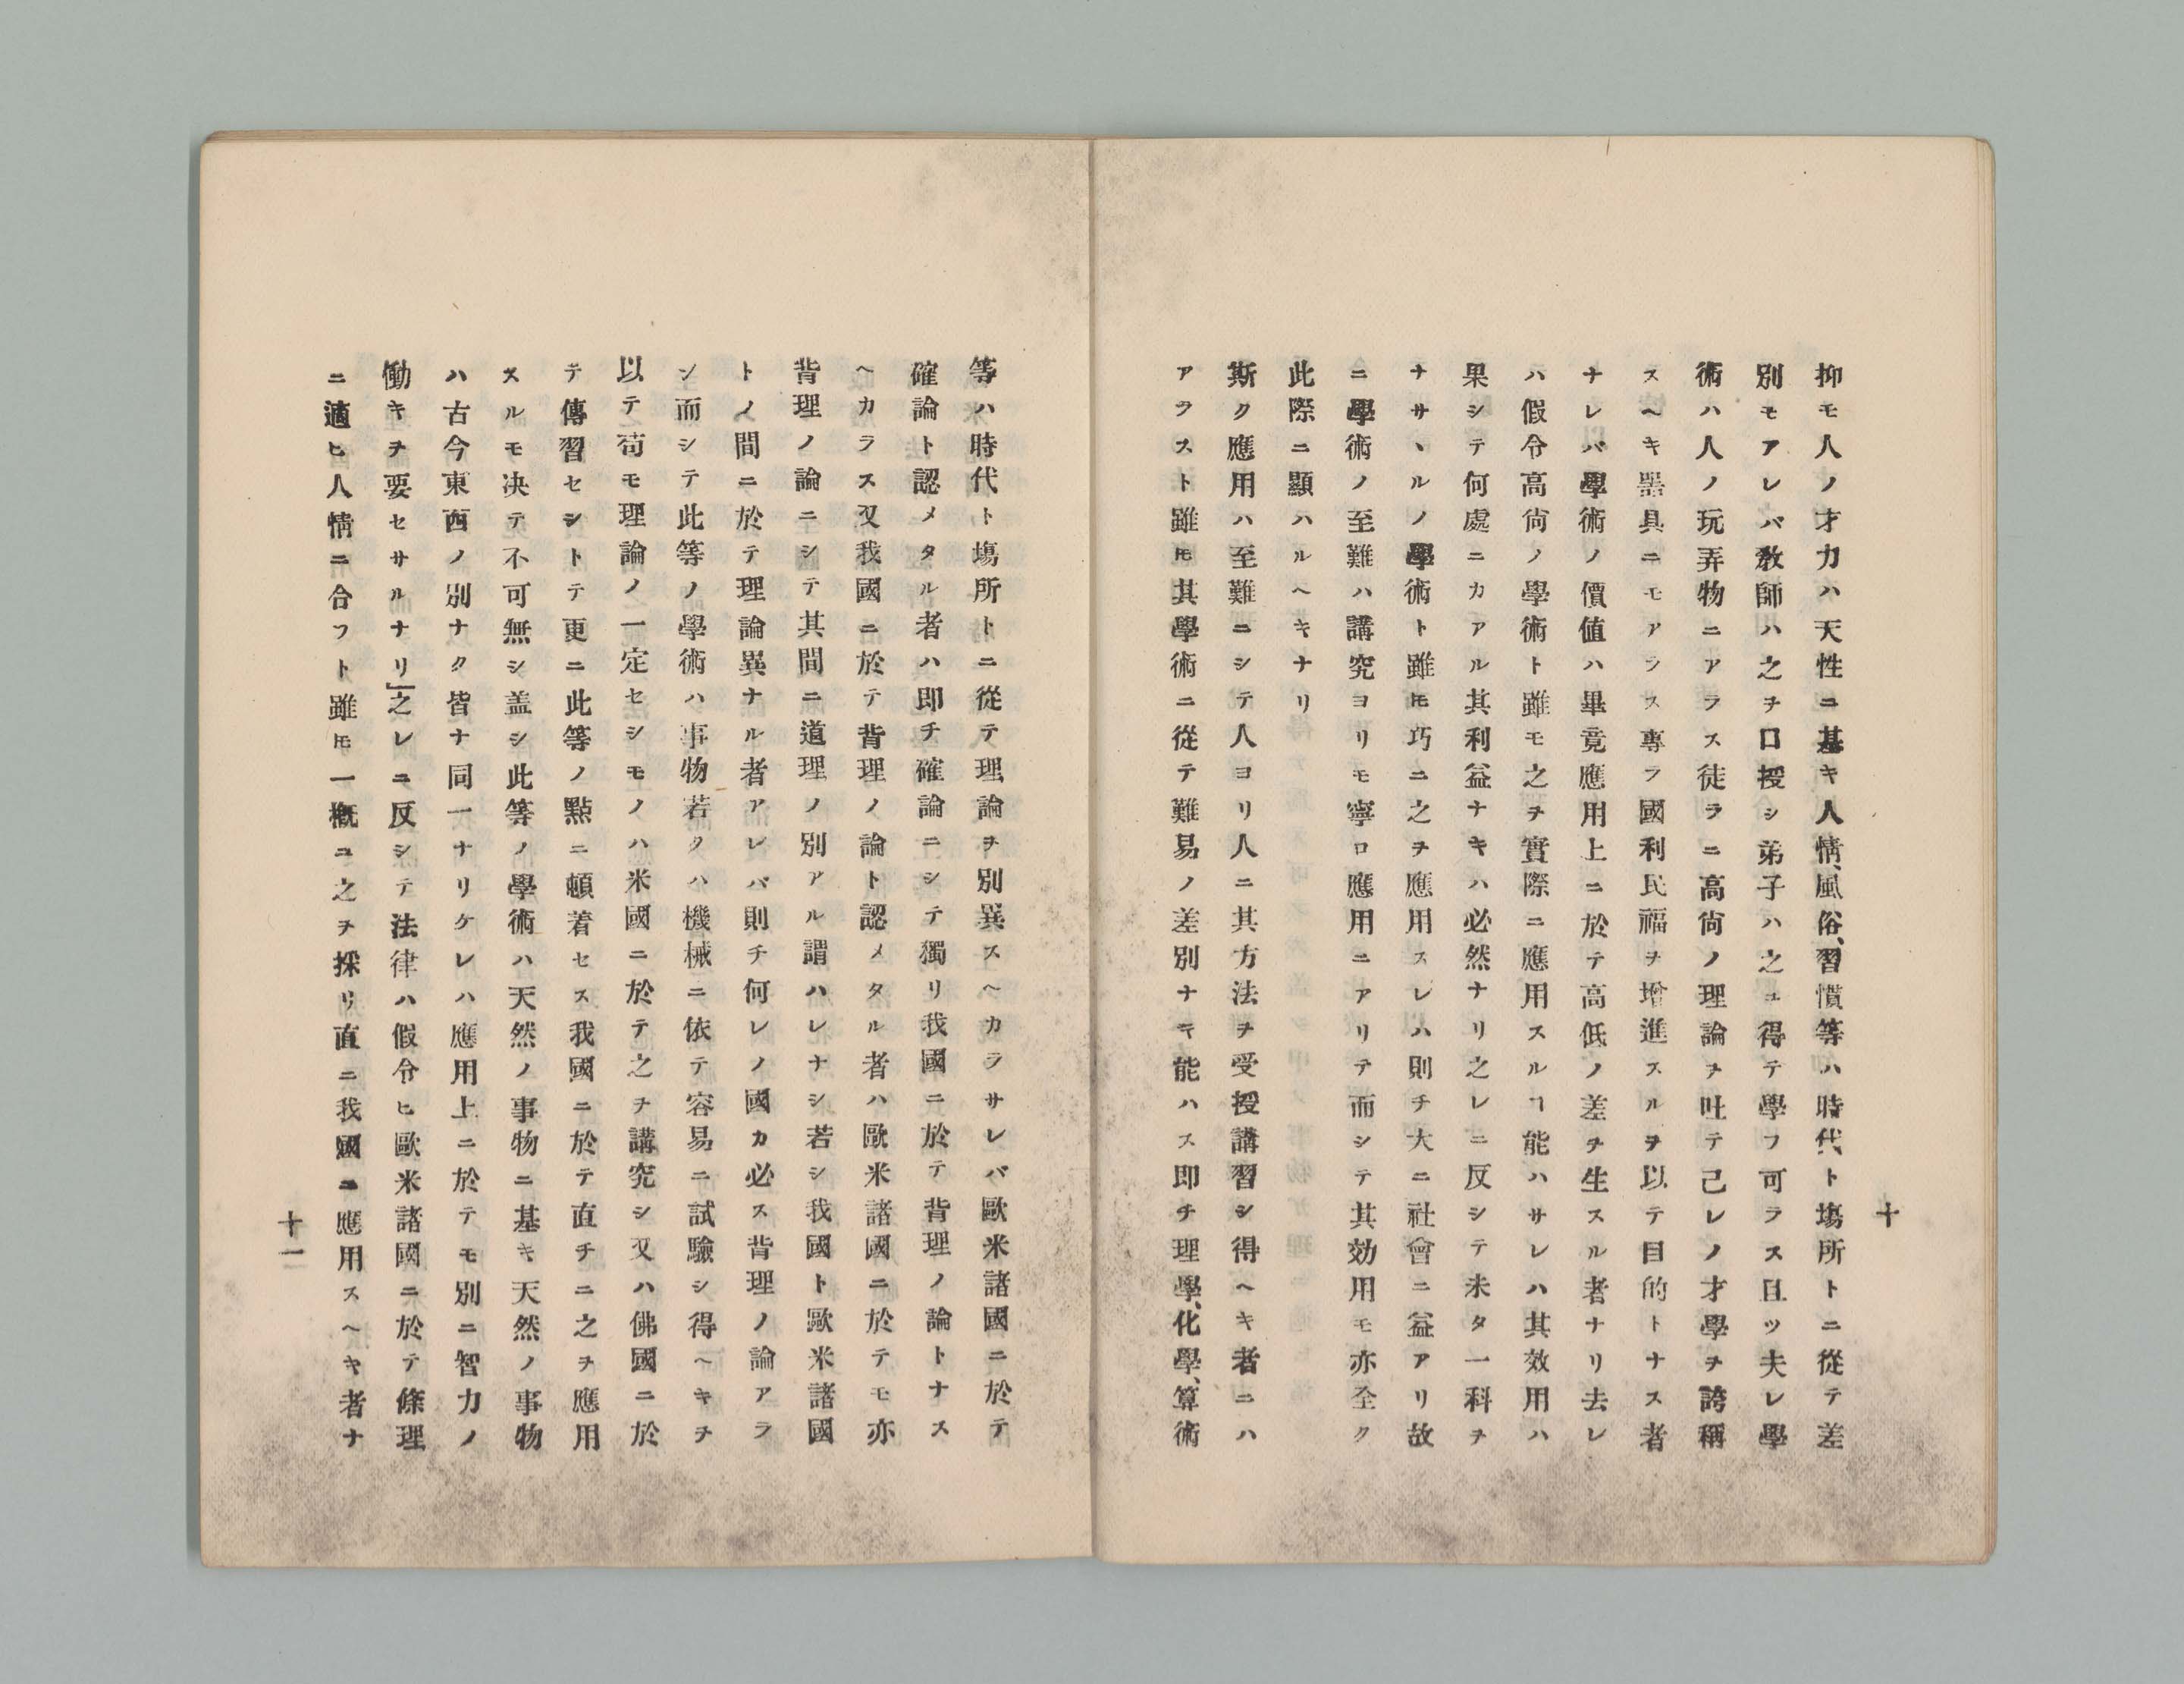 十
抑モ人ノ才力ハ天性ニ基キ人情、風俗、習慣等ハ時代ト塲所トニ從テ差
別モアレバ敎師ハ之ヲ口授シ弟子ハ之ヲ得テ學フ可ラス且ツ夫レ學
術ハ人ノ玩弄物ニアラス徒ラニ高尙ノ理論ヲ吐テ己レノ才學ヲ誇稱
スヘキ器具ニモアラス專ラ國利民福ヲ增進スルヲ以テ目的トナス者
ナレバ學術ノ價値ハ畢竟應用上ニ於テ高低ノ差ヲ生スル者ナリ去レ
ハ假令高尙ノ學術ト雖モ之ヲ實際ニ應用スルヿ能ハサレハ其效用ハ
果シテ何處ニカアル其利益ナキハ必然ナリ之レニ反シテ未タ一科ヲ
ナサヽルノ學術ト雖𪜈巧ニ之ヲ應用スレハ則チ大ニ社會ニ益アリ故
ニ學術ノ至難ハ講究ヨリモ寧ロ應用ニアリテ而シテ其効用モ亦全ク
此際ニ顯ハルヘキナリ
斯ク應用ハ至難ニシテ人ヨリ人ニ其方法ヲ受授講習シ得ヘキ者ニハ
アラスト雖𪜈其學術ニ從テ難易ノ差別ナキ能ハス即チ理學、化學、算術
等ハ時代ト塲所トニ從テ理論ヲ別異スヘカラサレバ歐米諸國ニ於テ
確論ト認メタル者ハ即チ確論ニシテ獨リ我國ニ於テ背理ノ論トナス
ヘカラス又我國ニ於テ背理ノ論ト認メタル者ハ歐米諸國ニ於テモ亦
背理ノ論ニシテ其間ニ道理ノ別アル謂ハレナシ若シ我國ト歐米諸國
トノ間ニ於テ理論異ナル者アレバ則チ何レノ國カ必ス背理ノ論アラ
ン而シテ此等ノ學術ハ事物若クハ機械ニ依テ容易ニ試驗シ得ヘキヲ
以テ苟モ理論ノ一定セシモノハ米國ニ於テ之ヲ講究シ又ハ佛國ニ於
テ傳習セシトテ更ニ此等ノ點ニ頓着セス我國ニ於テ直チニ之ヲ應用
スルモ决テ不可無シ盖シ此等ノ學術ハ天然ノ事物ニ基キ天然ノ事物
ハ古今東西ノ別ナク皆ナ同一ナリケレハ應用上ニ於テモ別ニ智力ノ
働キヲ要セサルナリ」之レニ反シテ法律ハ假令ヒ歐米諸國ニ於テ條理
ニ適ヒ人情ニ合フト雖𪜈一概ニ之ヲ採リ直ニ我國ニ應用スヘキ者ナ
十一